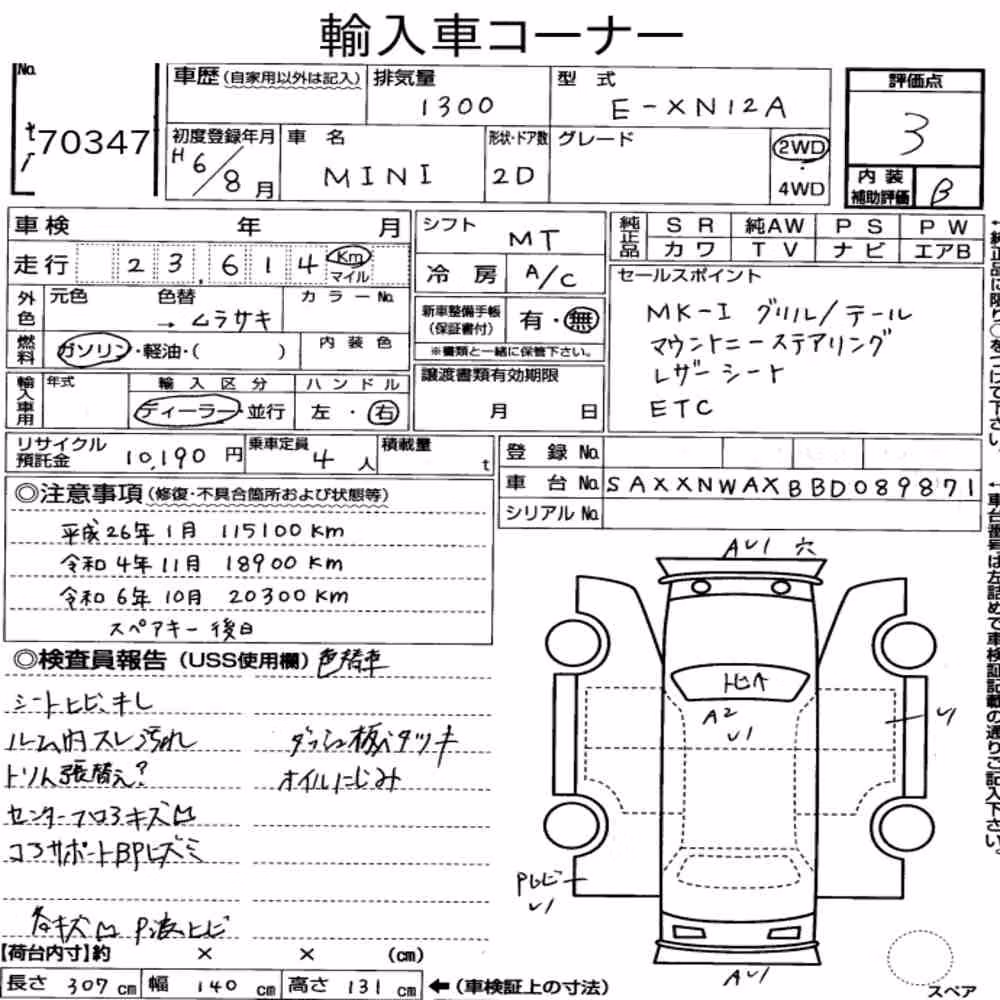 輸入車コーナー
No.
70347
車歴(自家用以外は記入)
排気量
1300
型式
E-XN12A
評価点
3
初度登録年月
H6/8月
車名
MINI
形状・ドア数
2D
グレード
2WD
4WD
内装
補助評価
B
車検 年 月
シフト
MT
純正品
SR 純AW PS PW
カワ TV ナビ エアB
走行 23,614 Km
マイル
冷房 A/C
外色
元色 色替 カラーNo.
→ムラサキ
新車整備手帳
(保証書付)
有・無
※書類と一緒に保管下さい。
セールスポイント
MK-I グリル/テール
マウントニーステアリング
レザーシート
ETC
燃料
ガソリン・軽油・( )
内装色
輸入車用
年式
輸入区分
ディーラー・並行
ハンドル
左・右
譲渡書類有効期限
月 日
リサイクル
預託金
10,190円
乗車定員
4人
積載量
t
登録No.
車台No. SAXXNWAXBBD089871
シリアルNo.
◎注意事項(修復・不具合箇所および状態等)
平成26年1月 115100Km
令和4年11月 18900Km
令和6年10月 20300Km
スペアキー後日
◎検査員報告(USS使用欄) 色替車
シートヒビ、キレ
ルーム内スレ汚れ
ダッシュ板ベタツキ
トリム張替え?
オイルにじみ
センターフロアキズ凹
コアサポートBPヒズミ
各キズ凹 P浪ヒビ
AU1 穴
トビA
A2
U1
U
Pヒビ
U1
AU1
スペア
【荷台内寸】約 × × (cm)
長さ 307cm 幅 140cm 高さ 131cm ←(車検証上の寸法)
←純正品に限り○をつけて下さい。
←車台番号は左詰めで車検証記載の通りご記入下さい。